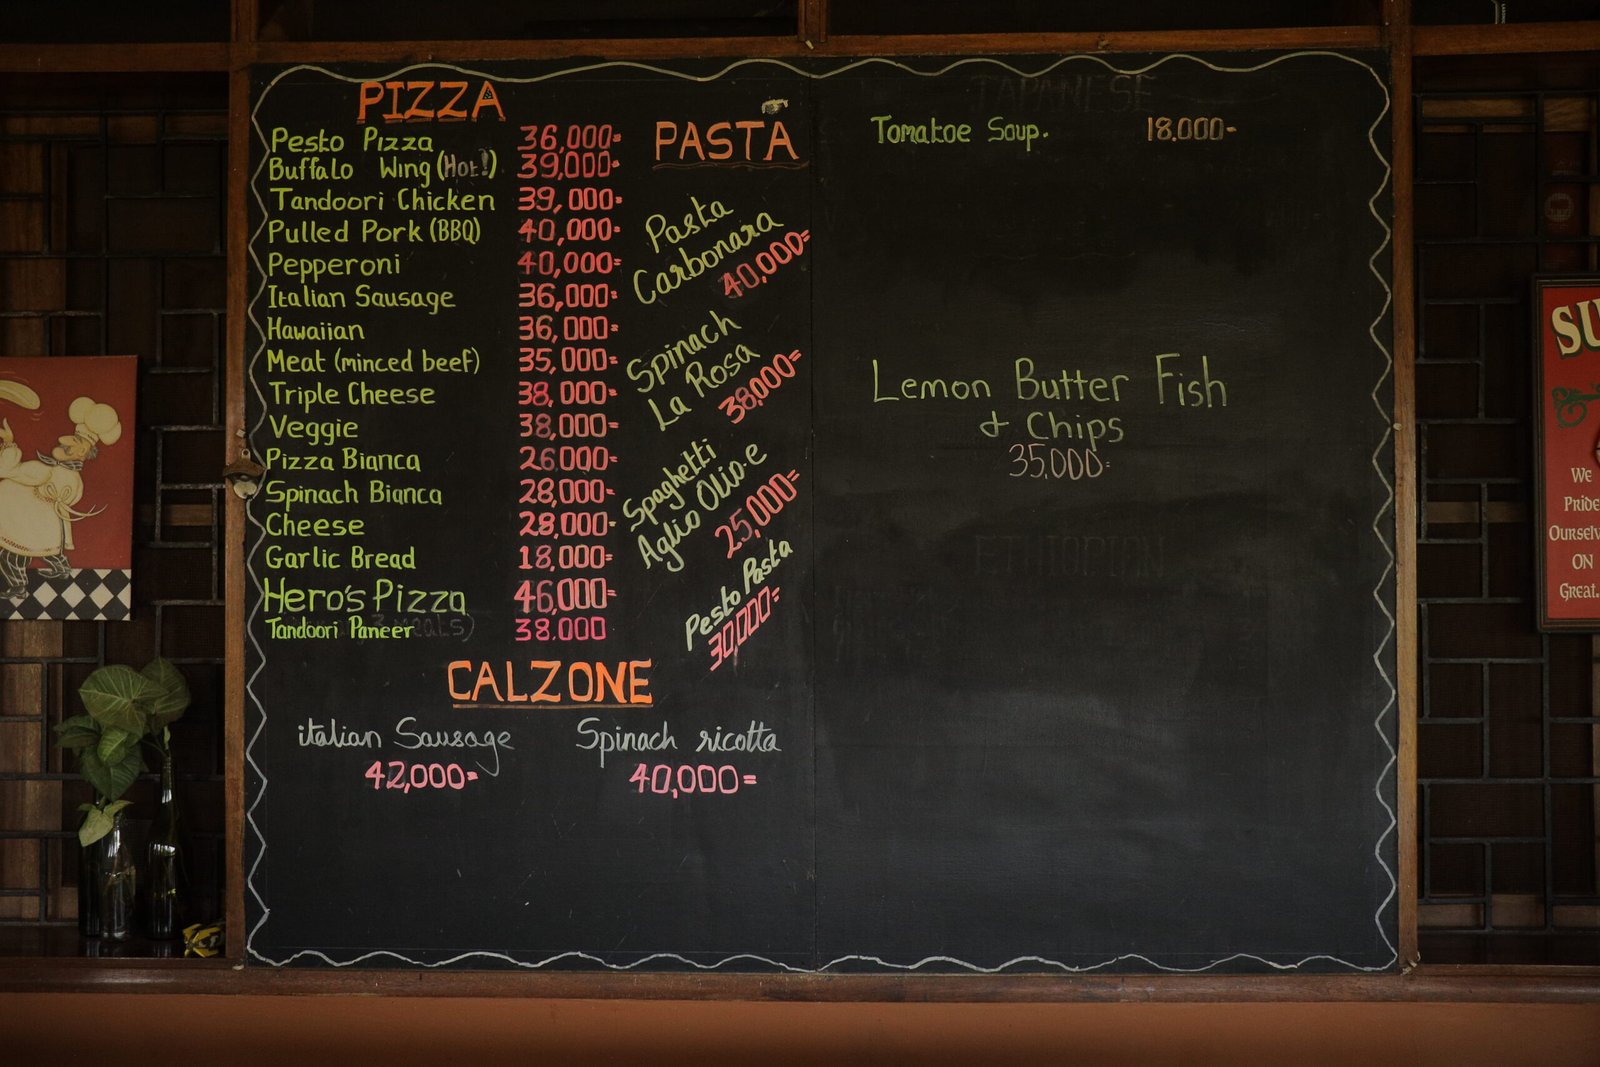 PIZZA
Pesto Pizza 36,000=
Buffalo Wing (Hot!) 39,000=
Tandoori Chicken 39,000=
Pulled Pork (BBQ) 40,000=
Pepperoni 40,000=
Italian Sausage 36,000=
Hawaiian 36,000=
Meat (minced beef) 35,000=
Triple Cheese 38,000=
Veggie 38,000=
Pizza Bianca 26,000=
Spinach Bianca 28,000=
Cheese 28,000=
Garlic Bread 18,000=
Hero's Pizza 46,000=
Tandoori Paneer 38.000
PASTA
Pasta
Carbonara
40,000=
Spinach
La Rosa
38,000=
Spaghetti
Aglio Olio-e
25,000=
Pesto Pasta
30,000=
CALZONE
italian Sausage
42,000=
Spinach ricotta
40,000=
JAPANESE
Tomatoe Soup. 18.000-
Lemon Butter Fish
& Chips
35,000=
ETHIOPIAN
SU
We
Pride
Ourselv
ON
Great.